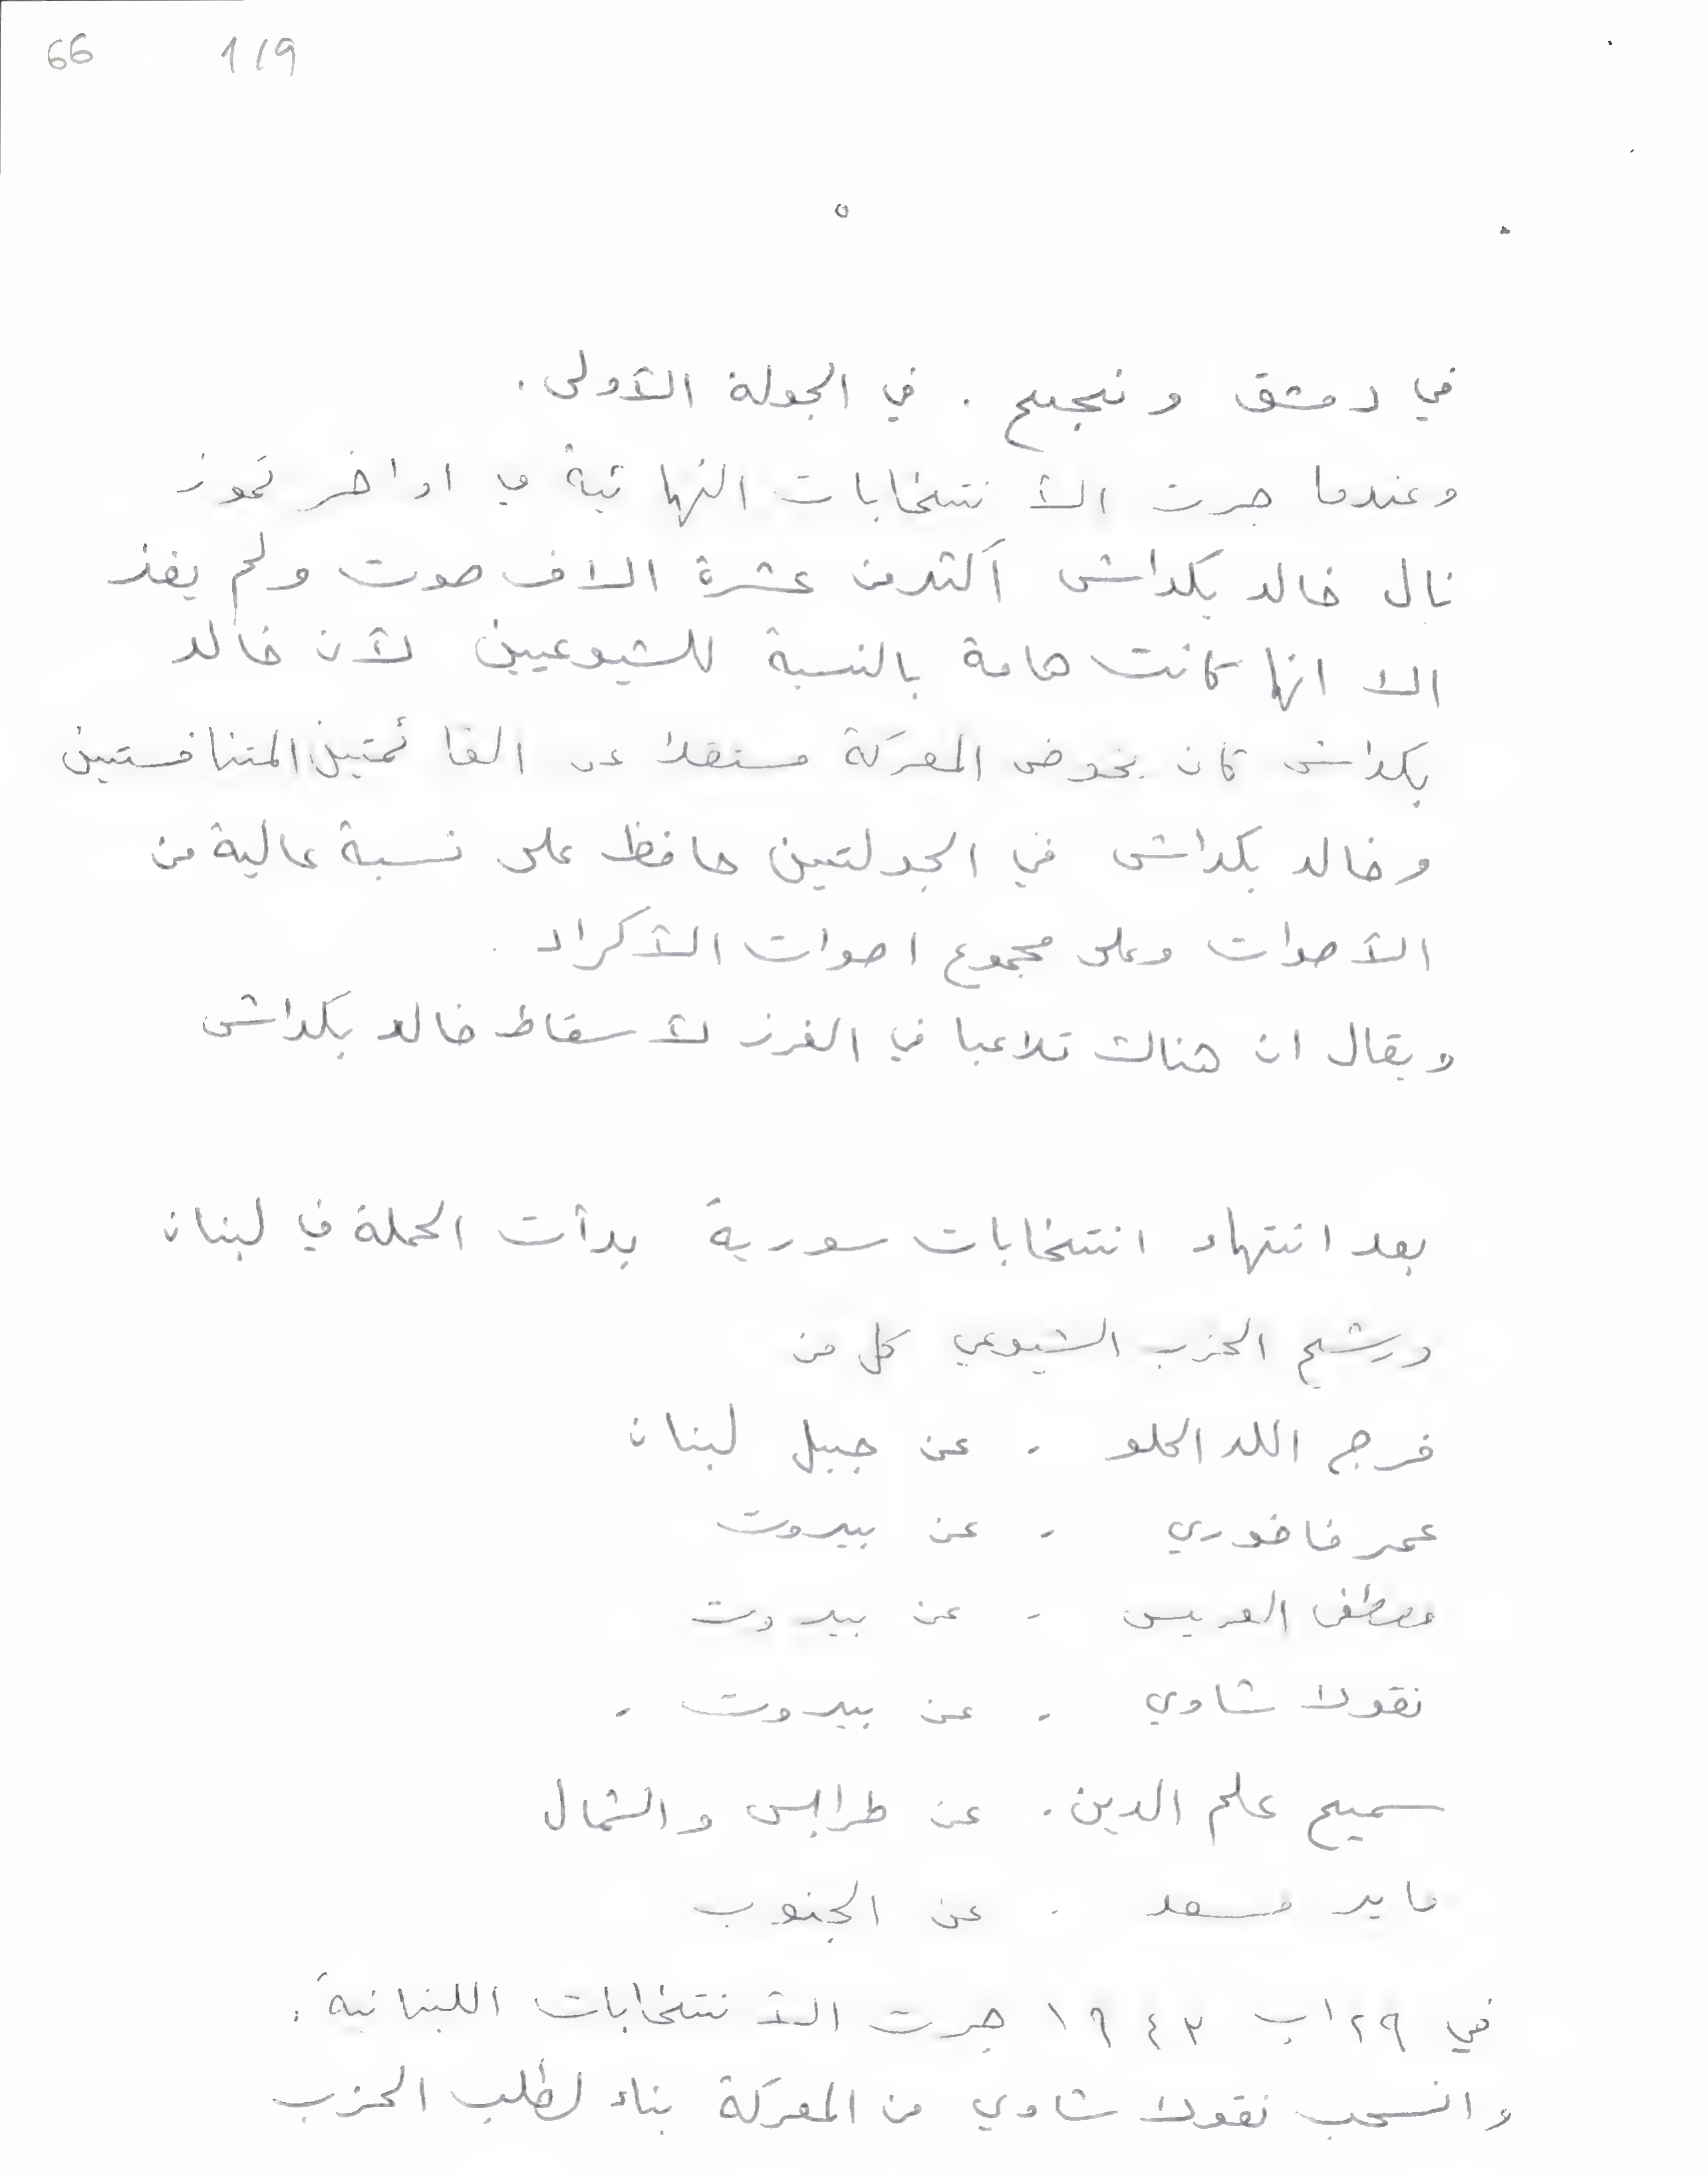 66 1/9
٥
في دمشق ونجح . في الجولة الأولى .
وعندما جرت الأنتخابات النهائية في اواخر تموز
نال خالد بكداش أكثر من عشرة الاف صوت ولم يفز
الا انها كانت هامة بالنسبة للشيوعيين لأن خالد
بكداش كان يخوض المعركة مستقلا عن القائمتين المتنافستين
وخالد بكداش في الجولتين حافظ على نسبة عالية من
الأصوات وعلى مجموع اصوات الأكراد .
ويقال ان هناك تلاعبا في الفرز لأسقاط خالد بكداش
بعد انتهاء انتخابات سورية بدأت الحملة في لبنان
ورشح الحزب الشيوعي كل من
فرج الله الحلو - عن جبل لبنان
عمر فاخوري - عن بيروت
مصطفى العريس - عن بيروت
نقولا شاوي - عن بيروت .
سميح علم الدين . عن طرابلس والشمال
عن الجنوب
في ٢٩ اب ١٩٤٣ جرت الأنتخابات اللبنانية .
وانسحب نقولا شاوي من المعركة بناء لطلب الحزب